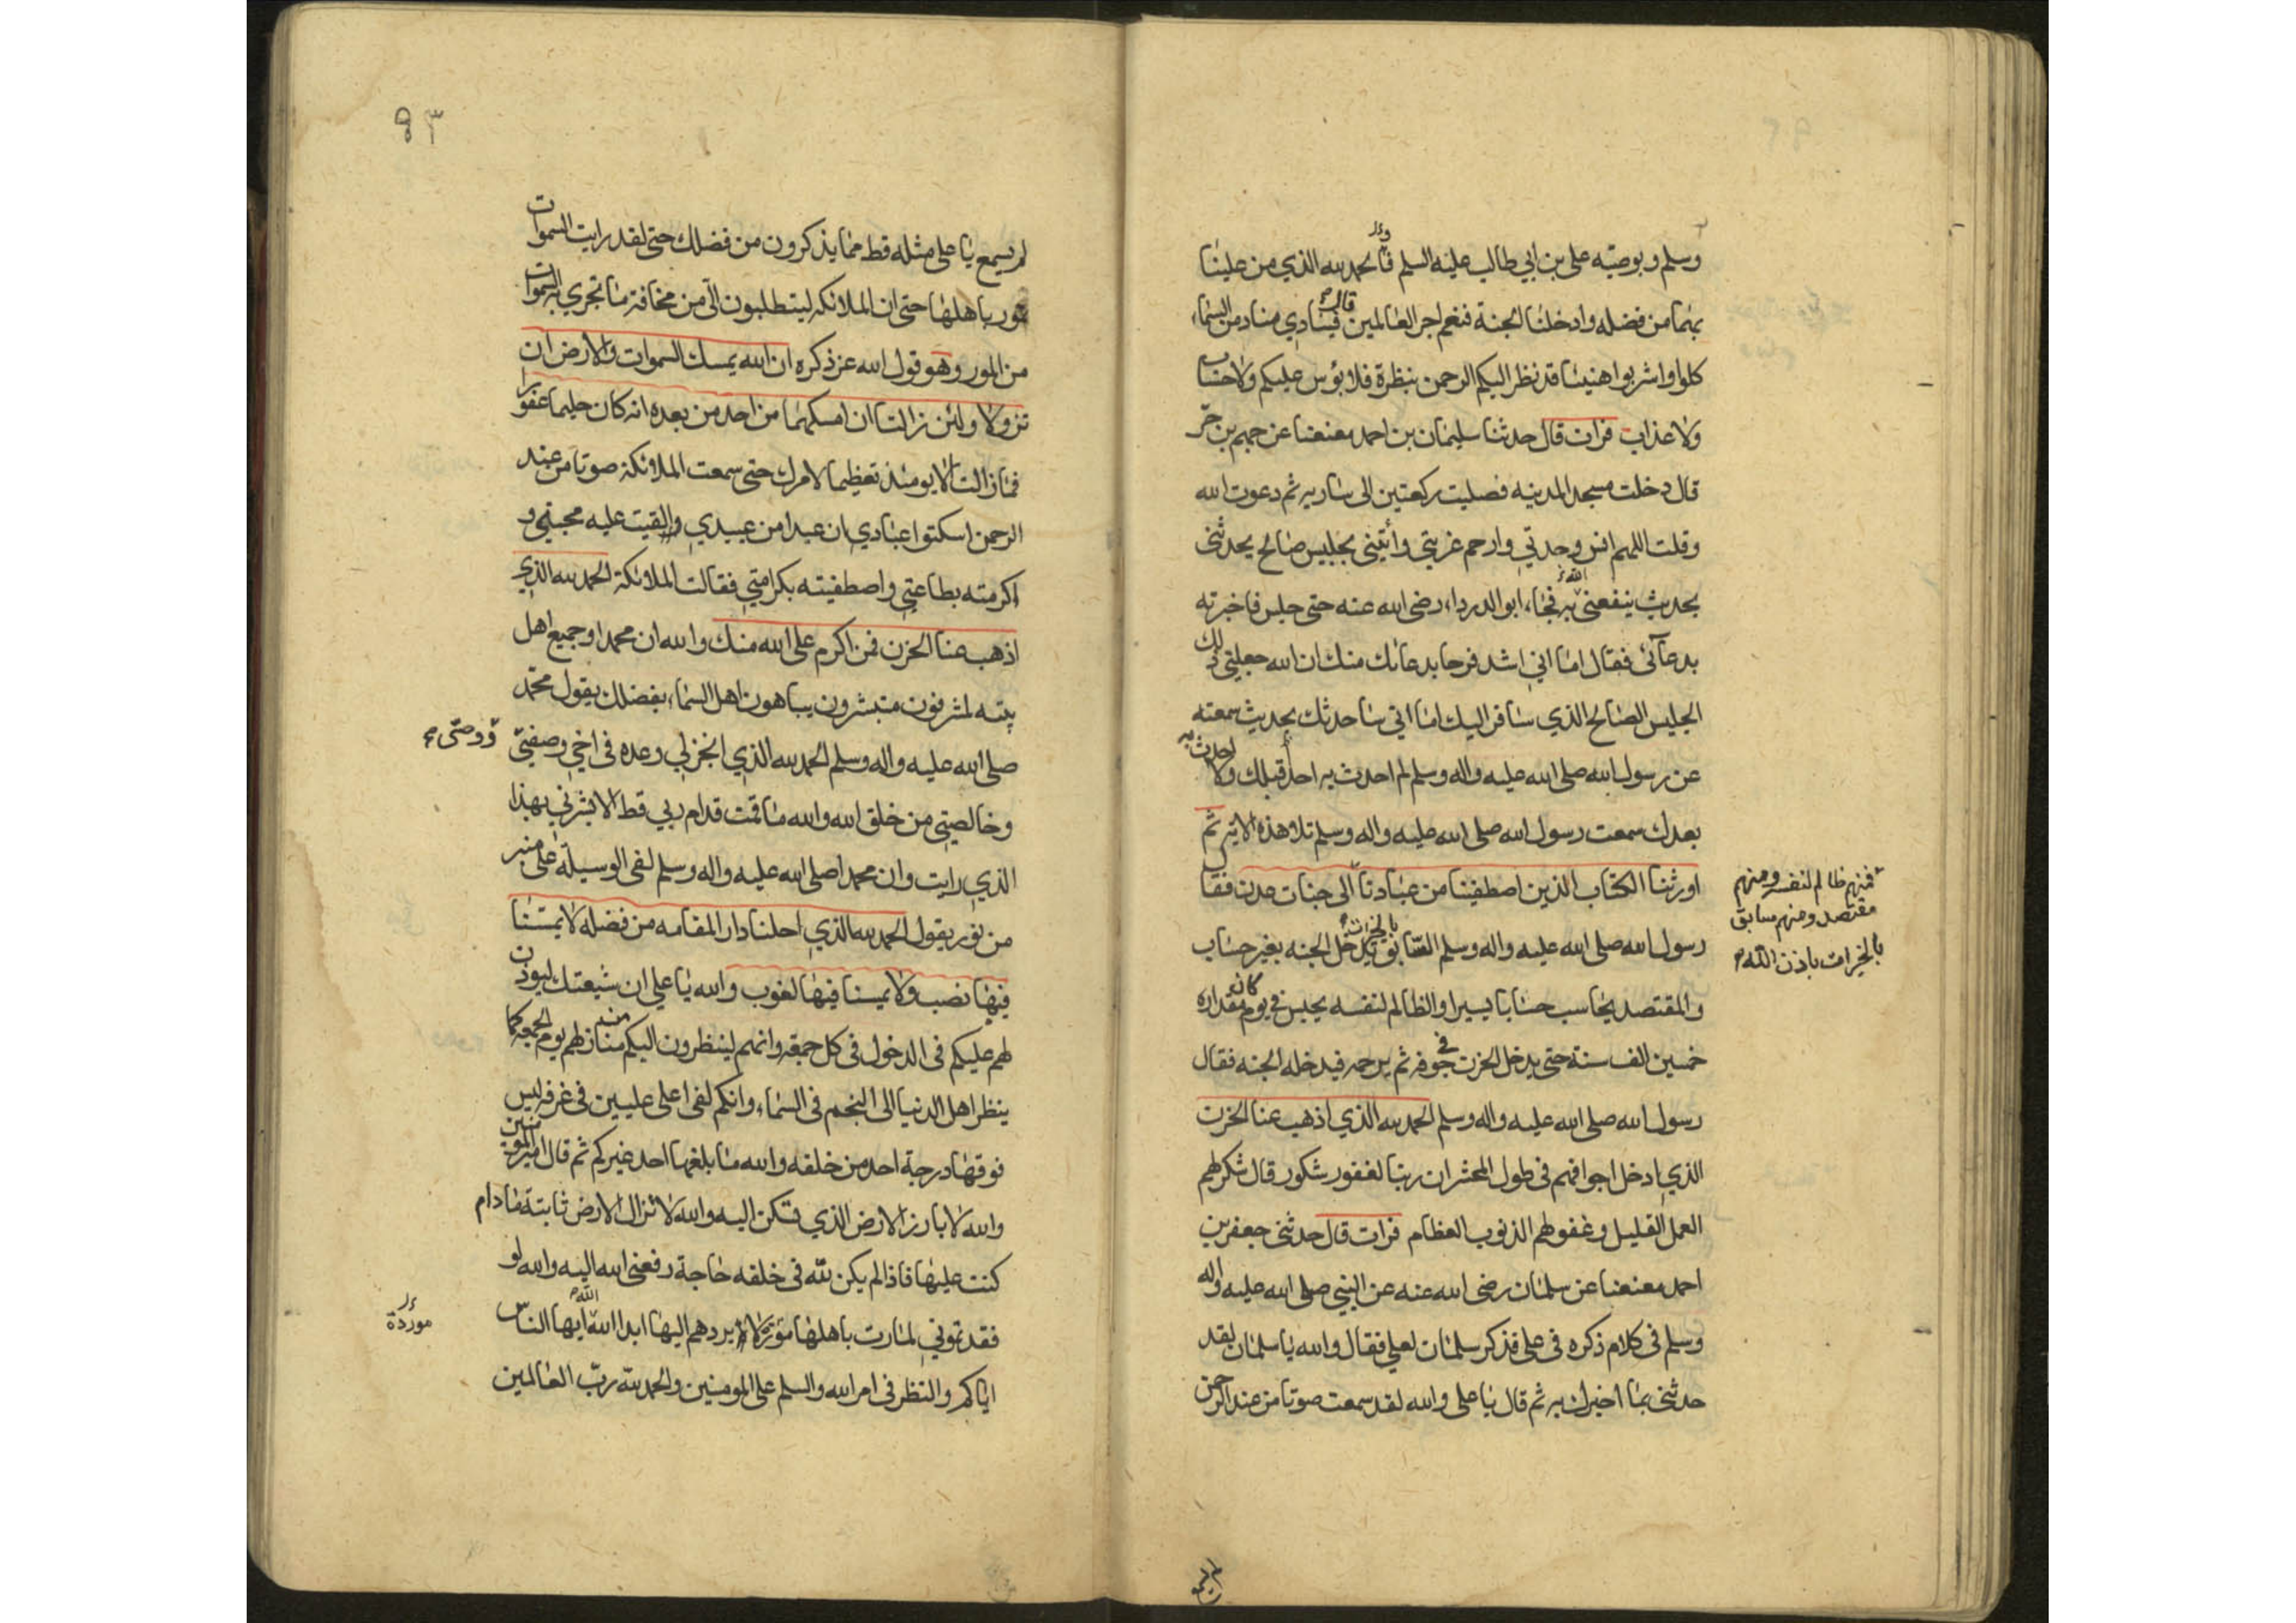 وسلم وبوصيته علي بن ابي طالب عليه السلم فالحمد لله الذي من علينا
بهما من فضله وادخلنا الجنة فنعم اجر العالمين قال فينادي مناد من السماء
كلوا واشربوا هنيئا قد نظر اليكم الرحمن بنظرة فلا بؤس عليكم ولا حساب
ولا عذاب فرات قال حدثنا سليمان بن احمد معنعنا عن جهم بن حر
قال دخلت مسجد المدينه فصليت ركعتين الى ساريه ثم دعوت الله
وقلت اللهم انس وحدتي وارحم غربتي وأتيني بجليس صالح يحدثني
بحديث ينفعني الله به فجاء ابو الدرداء رضى الله عنه حتى جلس فاخبرته
بدعآئى فقال اما اني اشد فرحا بدعائك منك ان الله جعلني ذلك
الجليس الصالح الذي سافر اليك اما اني ساحدثك بحديث سمعته
عن رسول الله صلى الله عليه واله وسلم لم احدث به احدا قبلك ولا احدث به
بعدك سمعت رسول الله صلى الله عليه واله وسلم تلا هذه الاية ثم
اورثنا الكتاب الذين اصطفينا من عبادنا الى جنات عدن فقال
فمنهم ظالم لنفسه ومنهم
مقتصد ومنهم سابق
بالخيرات باذن الله
رسول الله صلى الله عليه واله وسلم السابق بالخيرات يدخل الجنه بغير حساب
والمقتصد يحاسب حسابا يسيرا والظالم لنفسه يحبس في يوم كان مقداره
خمسين الف سنة حتى يدخل الحزن في جوفه ثم يرحمه فيدخله الجنه فقال
رسول الله صلى الله عليه واله وسلم الحمد لله الذي اذهب عنا الحزن
الذي ادخل اجوافهم فى طول المحشر ان ربنا لغفور شكور قال شكر لهم
العمل القليل وغفر لهم الذنوب العظام فرات قال حدثنى جعفر بن
احمد معنعنا عن سلمان رضى الله عنه عن النبي صلى الله عليه واله
وسلم فى كلام ذكره فى على فذكر سلمان لعلي فقال والله يا سلمان لقد
حدثنى بما اخبرك به ثم قال يا على والله لقد سمعت صوتا من عند الرحمن
٩٣
لم يسمع يا على مثله قط مما يذكرون من فضلك حتى لقد رايت السموات
تمور باهلها حتى ان الملائكه ليتطلبون الي من مخافة ما تجري به السموات
من المور وهو قول الله عز ذكره ان الله يمسك السموات والارض ان
تزولا ولئن زالتا ان امسكهما من احد من بعده انه كان حليما غفورا
فما زالت الا يومئذ تعظيما لامرك حتى سمعت الملائكة صوتا من عند
الرحمن اسكتوا عبادي ان عبدا من عبيدي القيت عليه محبتي و
اكرمته بطاعتي واصطفيته بكرامتي فقالت الملائكة الحمد لله الذي
اذهب عنا الحزن فمن اكرم على الله منك والله ان محمدا وجميع اهل
بيته لمشرفون متبشرون يباهون اهل السماء بفضلك يقول محمد
صلى الله عليه واله وسلم الحمد لله الذي انجز لي وعده فى اخي وصفيي
ووصيي
وخالصتي من خلق الله والله ما قمت قدام ربي قط الا بشرني بهذا
الذي رايت وان محمدا صلى الله عليه واله وسلم لفى الوسيلة على منبر
من نور يقول الحمد لله الذي احلنا دار المقامه من فضله لا يمسنا
فيها نصب ولا يمسنا فيها لغوب والله يا علي ان شيعتك ليوذن
لهم عليكم فى الدخول فى كل جمعة وانهم لينظرون اليكم من منازلهم يوم الجمعه كما
ينظر اهل الدنيا الى النجم فى السماء وانكم لفى اعلى عليين فى غرفه ليس
فوقها درجة احد من خلقه والله ما بلغها احد غيركم ثم قال امير المومنين
والله لا بارز الارض الذي تسكن اليه والله لا تزال الارض ثابتة ما دام
كنت عليها فاذا لم يكن لله فى خلقه حاجة رفعني الله اليه والله لو
فقدتموني لمارت باهلها مورا لا يردهم اليها ابدا الله الله ايها الناس
موردة
اياكم والنظر فى امر الله والسلم على المومنين والحمد لله رب العالمين